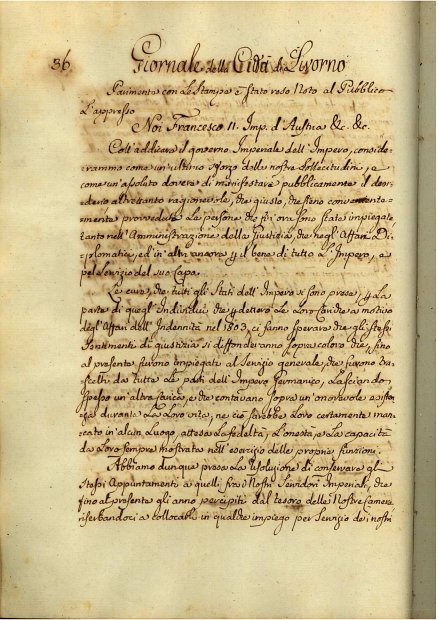 36.
Giornale della Città di Livorno
Parimente con Le Stampe è stato reso Noto al Pubblico
L'appresso
Noi Francesco II. Imp. d'Austria &c. &c.
Coll'addicare il governo Imperiale dell'Impero, conside-
rammo come un'ultimo sforzo della nostra sollecitudine, e
come un'assoluto dovere di manifestare pubblicamente il desi-
derio altretanto ragionevole, che giusto, che sieno convenevole-
mente provvedute Le persone, che fin'ora sono state impiegate
tanto nell'Amministrazione della Giustizia, che negl'Affari Di-
plomatici, ed in'altri ancora p il bene di tutto L'Impero, e
pel servizio del suo Capo.
Le cure, che tutti gli Stati dell'Impero si sono prese p La
parte di quegl'Individui, che perdettero Le Loro Cariche a motivo
degl'Affari dell'Indennità nel 1803, ci fanno sperare che gli stessi
sentimenti di giustizia si diffonderanno sopra coloro che, fino
al presente furono impiegati al Servizio generale, che furono tra-
scelti da tutte Le parti dell'Impero Germanico, Lasciando
spesso un'altra carica, e che contavano sopra un'onorevole esisten-
za durante La Loro vita, ne ciò sarebbe Loro certamente man-
cato in'alcun Luogo, attesa La fedeltà, L'onestà, e La capacità
da Loro sempre mostrata nell'esercizio delle proprie funzioni.
Abbiamo dunque presa La risoluzione di conservare gli
stessi Appuntamenti a quelli fra i Nostri Servidori Imperiali, che
fino al presente gli anno percipiti dal tesoro della Nostra Camera
riserbandoci a collocarli in qualche impiego per Servizio dei nostri